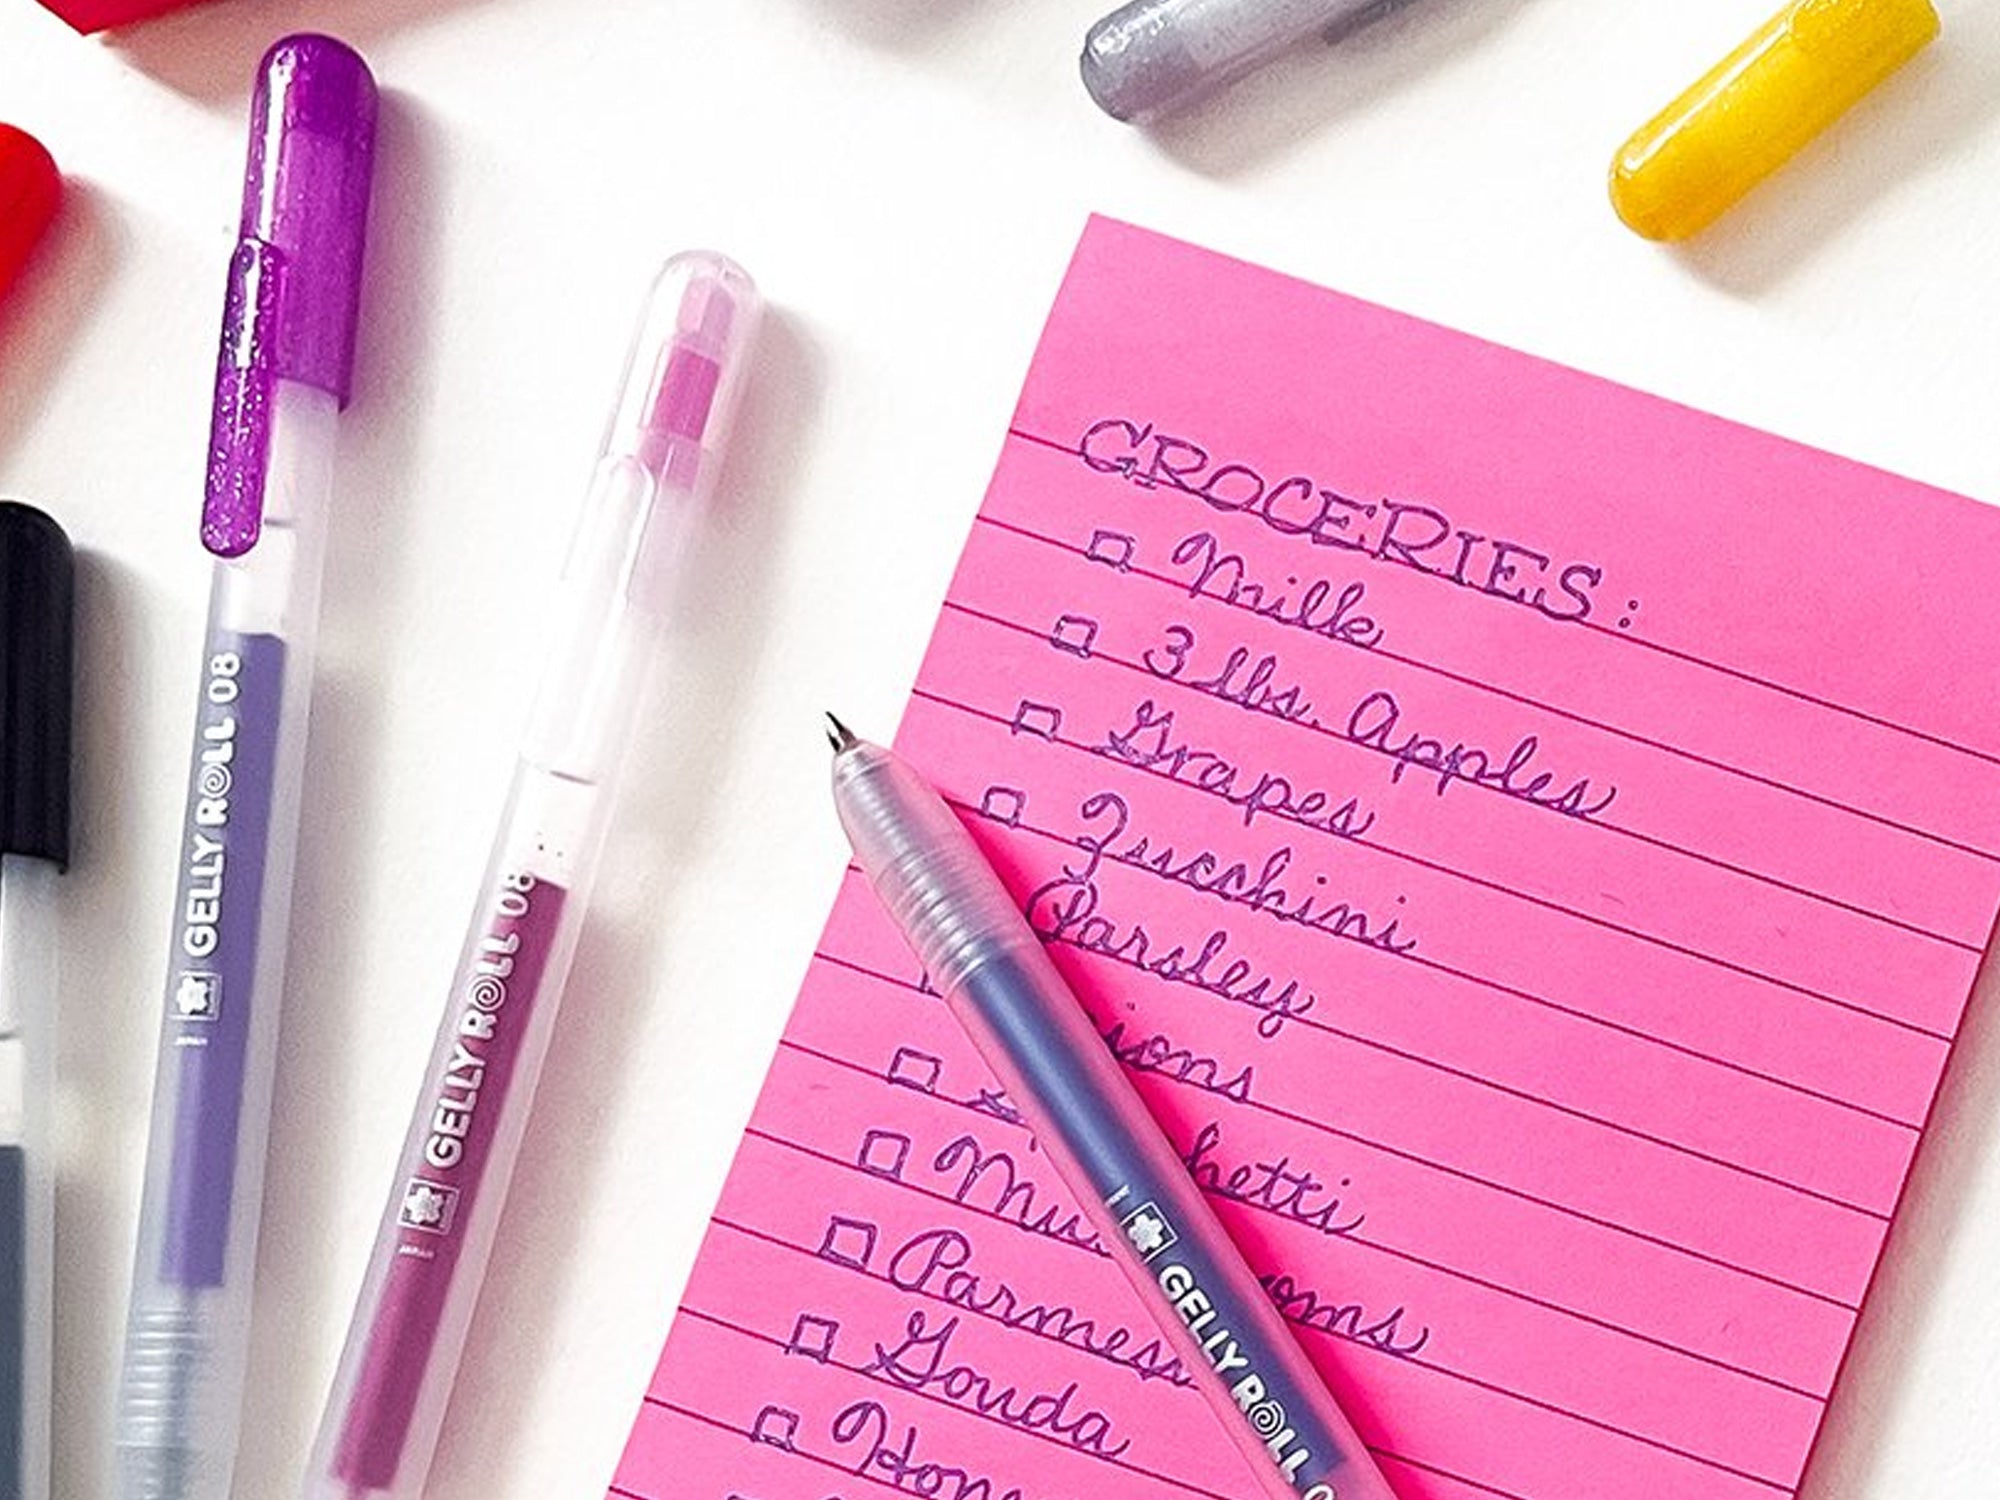 GELLY ROLL 08
JAPAN
GELLY ROLL 08
JAPAN
GROCERIES:
Milk
3 lbs. Apples
Grapes
Zucchini
Parsley
Gouda
GELLY ROLL